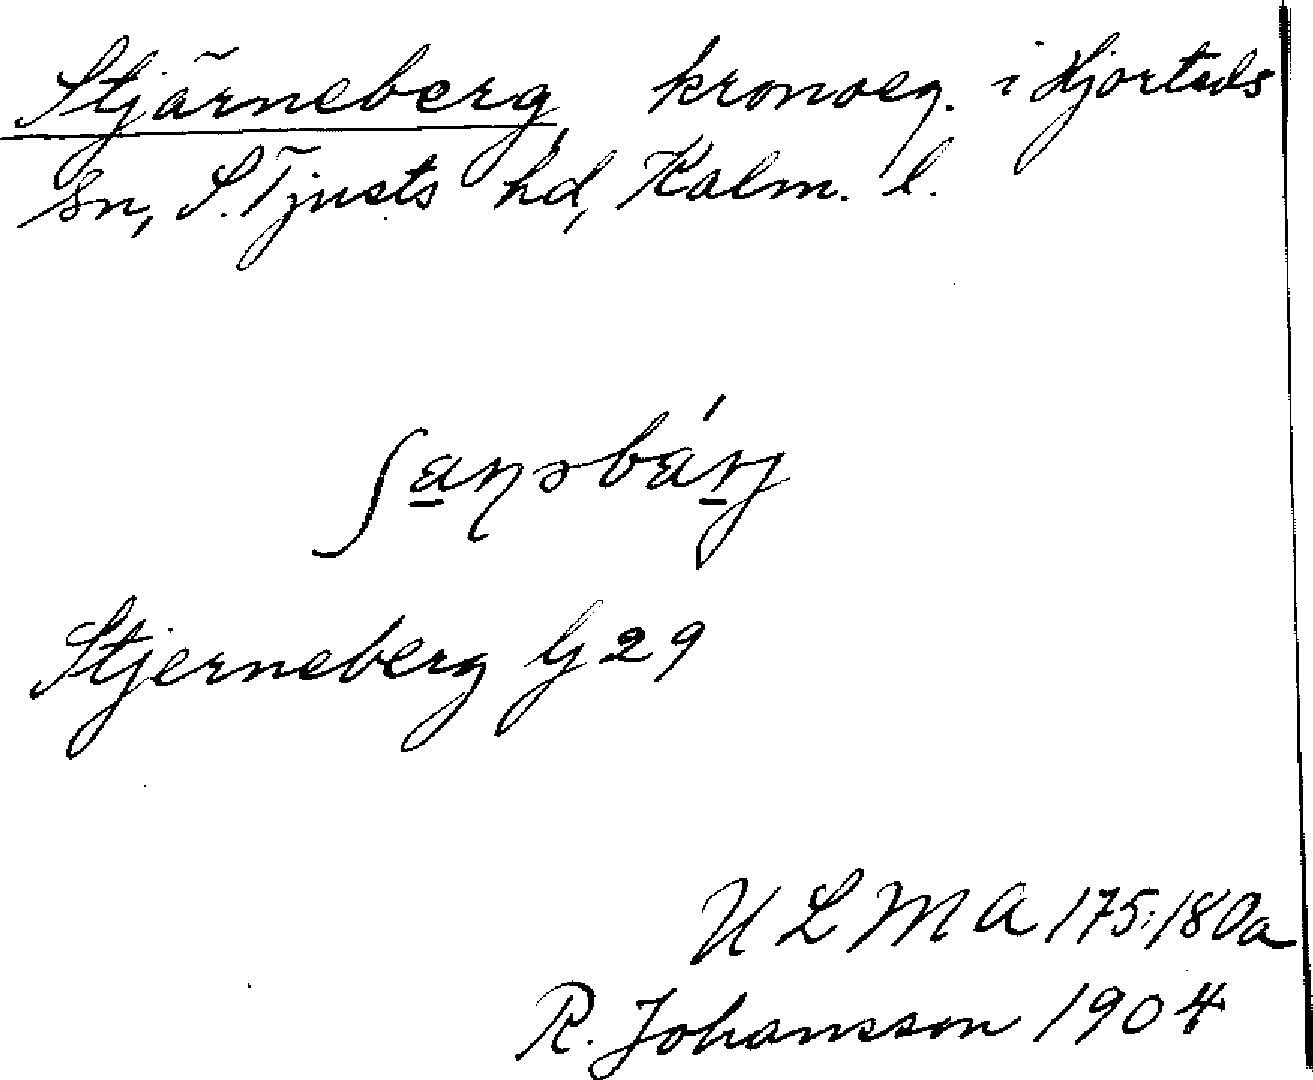 Stjärneberg, kronoeg. i Hjorteds
sn, S. Tjusts hd, Kalm. l.
Stjerneberg G 29
ULMA 175:180a
R. Johansson 1904